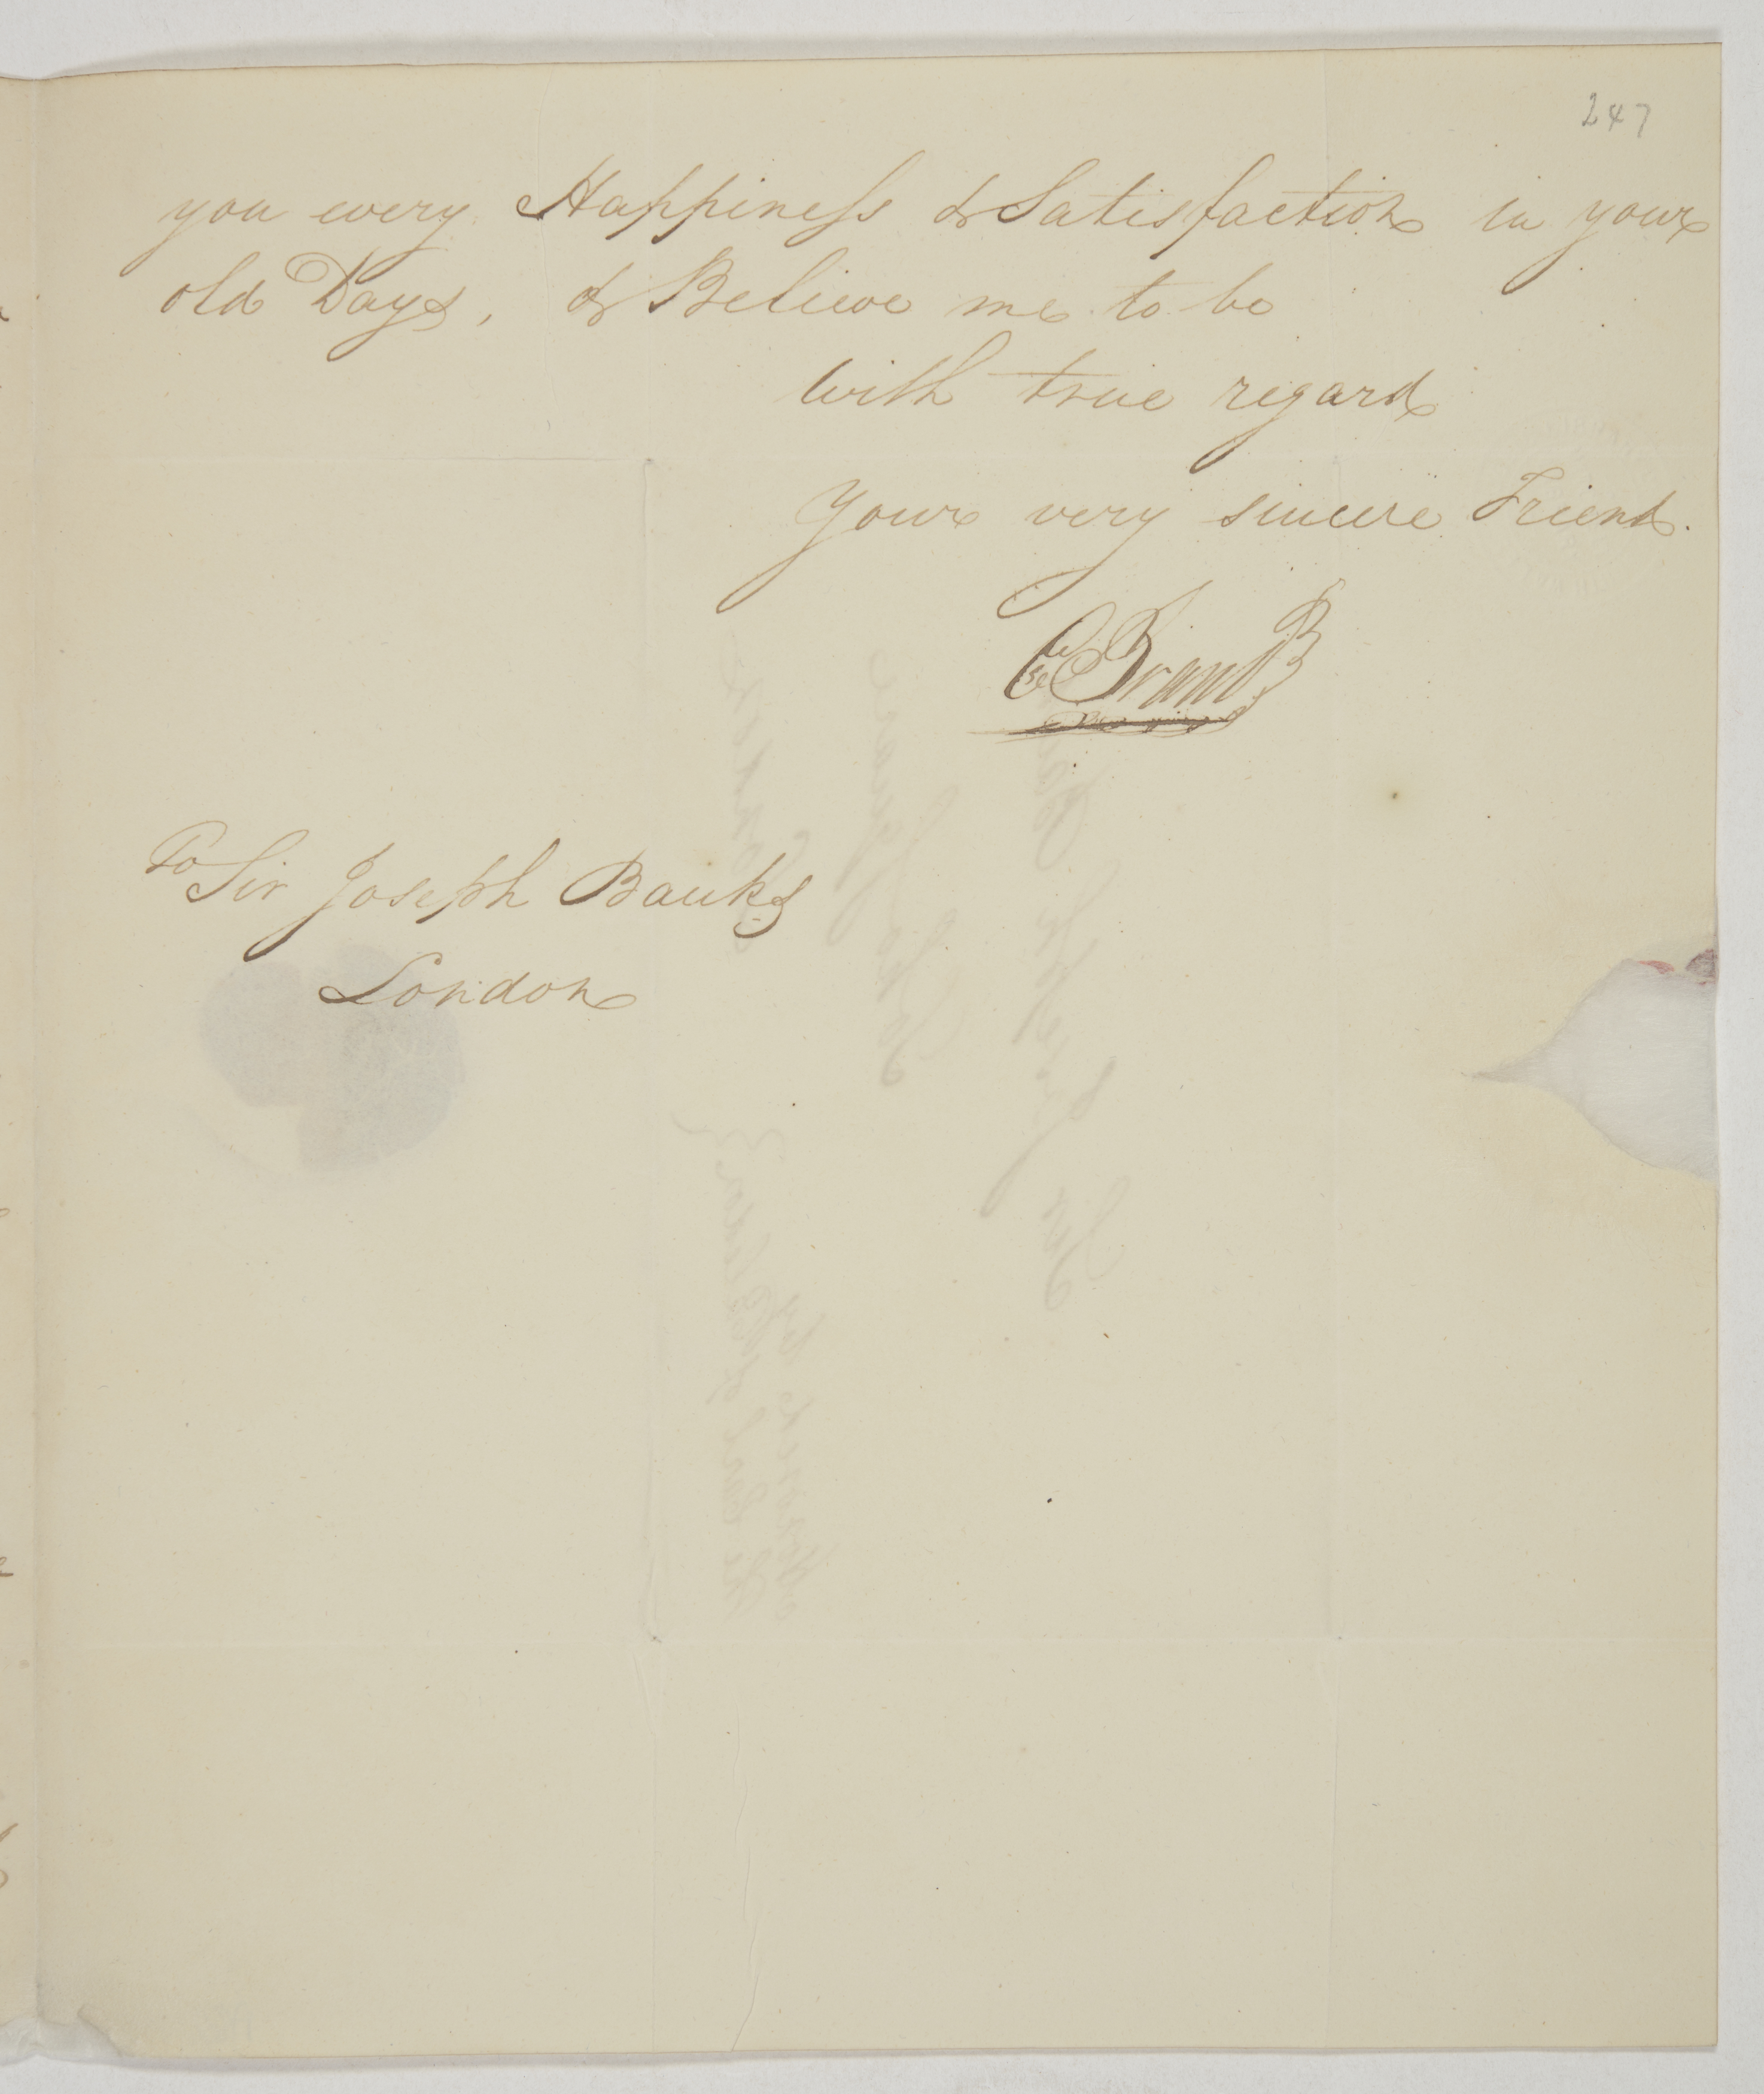 247
you every Happiness & Satisfaction in your
old Days, & Believe me to be
with true regard
Your very sincere Friend.
Brand
To Sir Joseph Banks
London